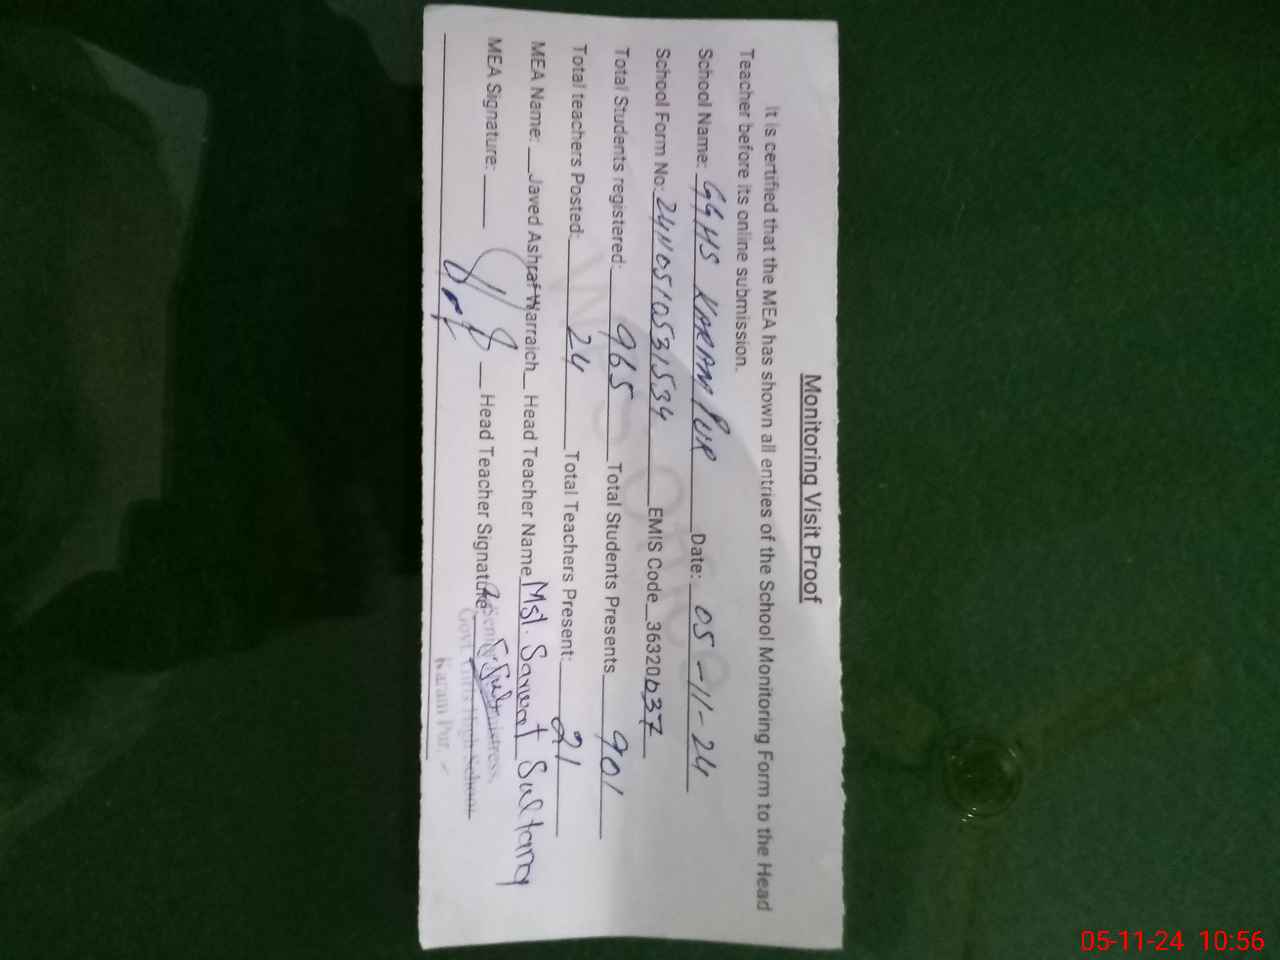 Monitoring Visit Proof
It is certified that the MEA has shown all entries of the School Monitoring Form to the Head
Teacher before its online submission.
School Name: GGHS KARAM PUR Date: 05-11-24
School Form No: 24110510531534 EMIS Code 36320637
Total Students registered: 965 Total Students Presents 901
Total teachers Posted: 24 Total Teachers Present: 21
MEA Name: Javed Ashraf Warraich Head Teacher Name Mst. Sarwat Sultana
MEA Signature: Head Teacher Signature
Govt. Girls High School
Karam Pur.
05-11-24 10:56